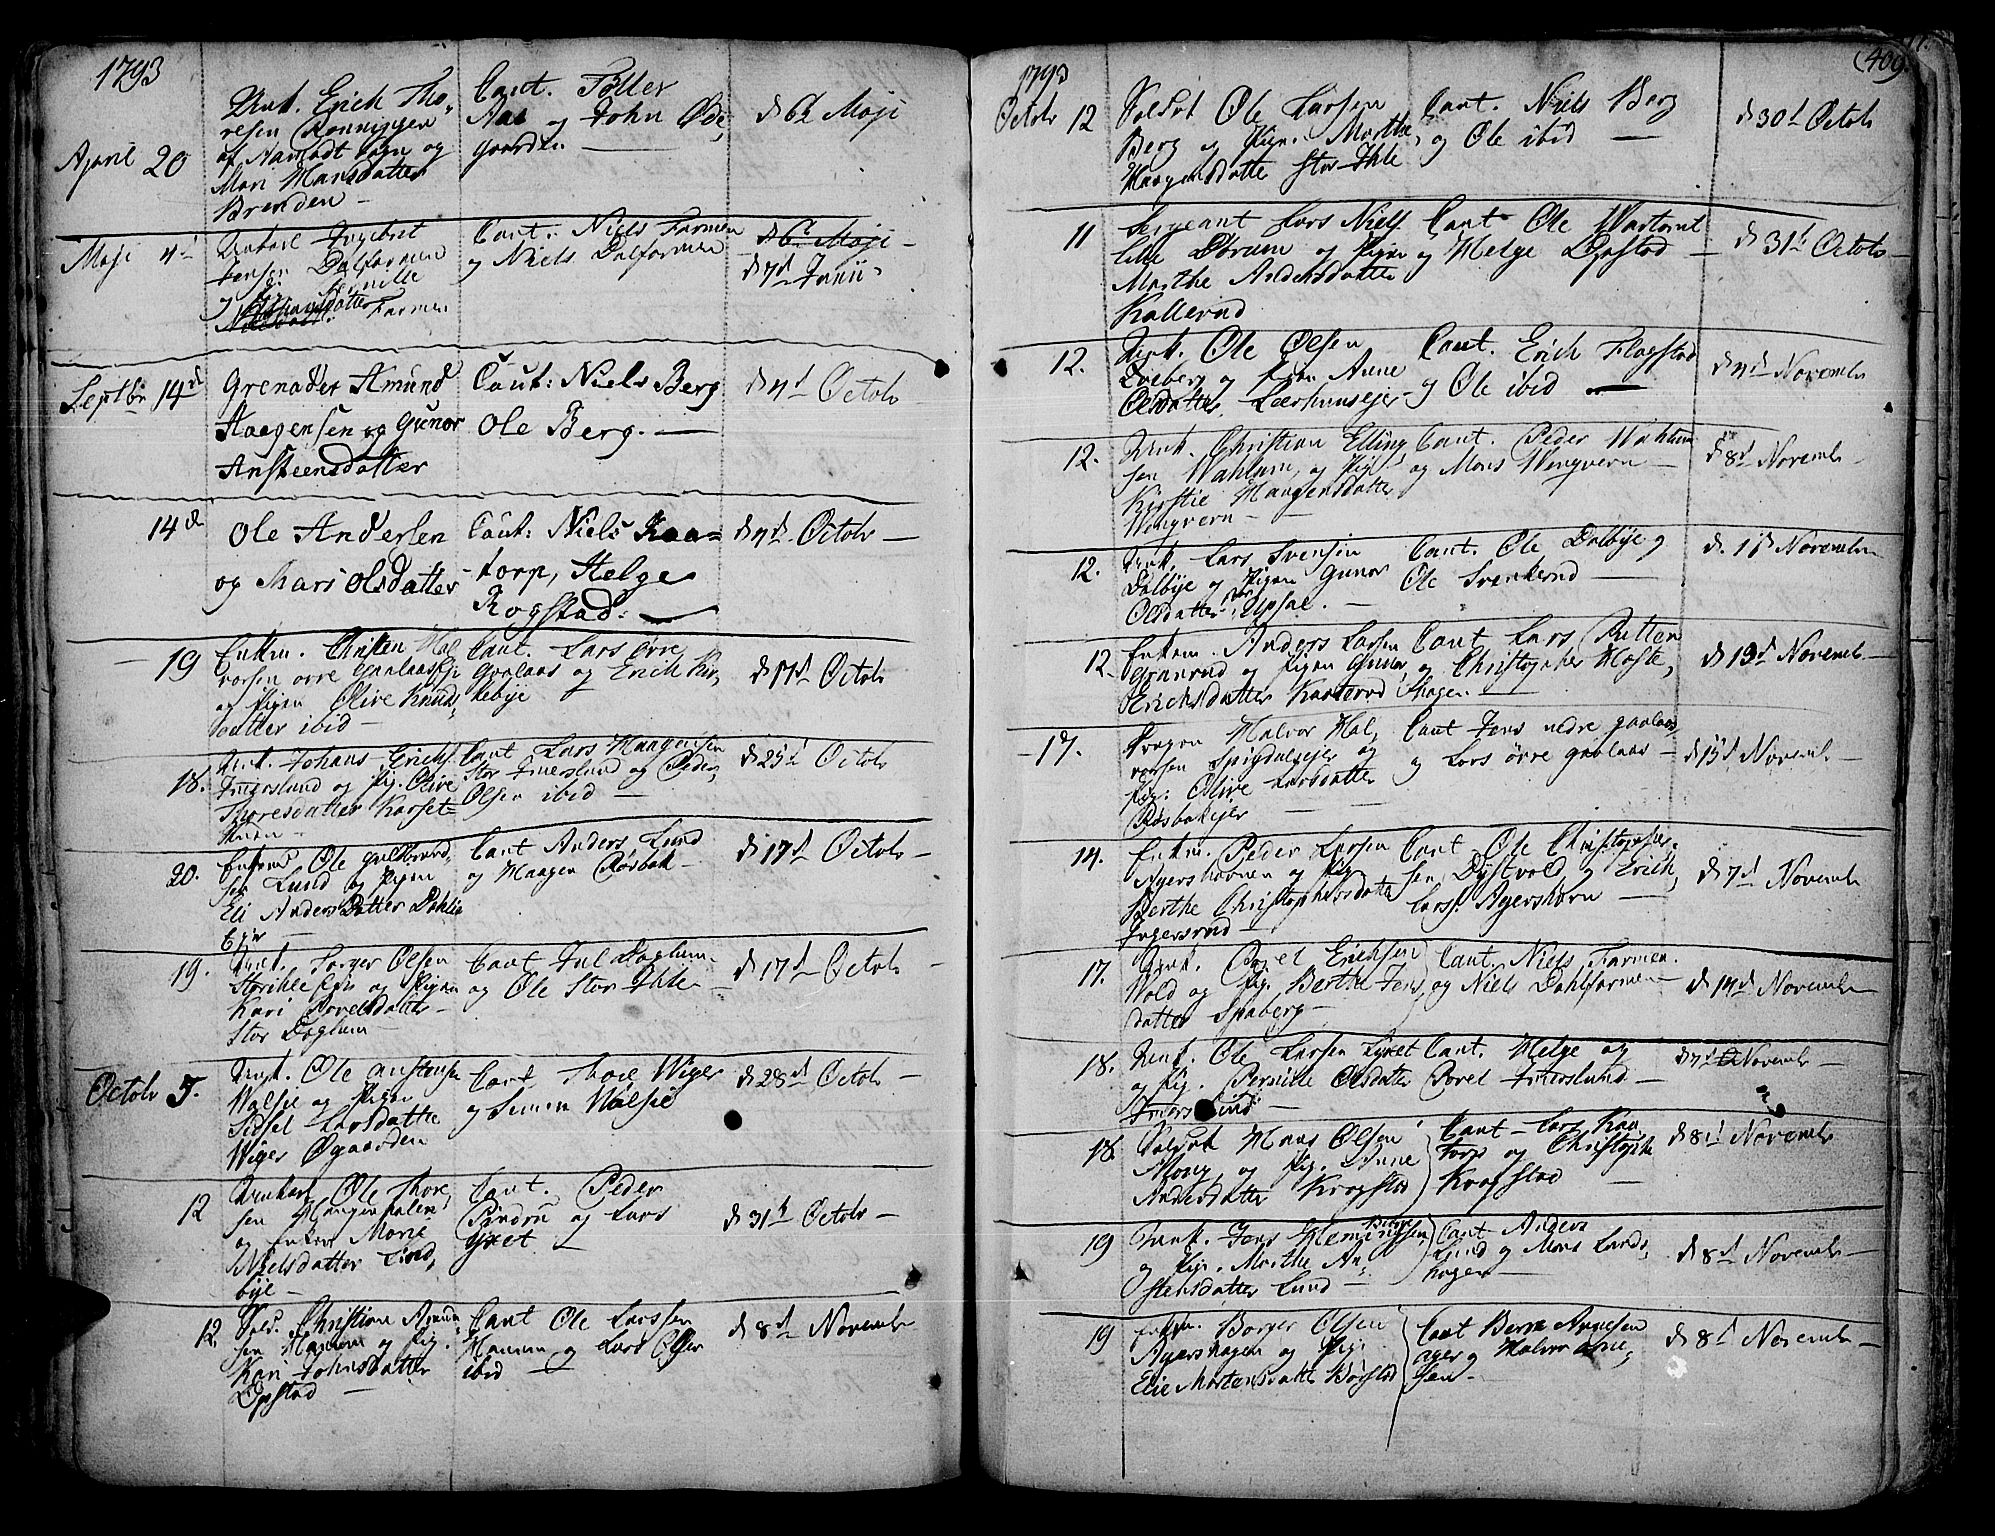 1793
April 20
Unk. Erich Tho,
resen Ronniggen
af Namstadt sogn og
Mari Hansdatter
Brenden –
Caut. Foller
Aas og John Øde,
gaarden
d 6te Maji
Maji 4d
Unkarl Ingebret
Jensen Dalfarmen
og Pernille
Farmen
Caut: Niels Farmen
og Niels Dalfarmen
d 6 Maji –
d 7d Junii
Septbr 14d
Grenader Amund
Haagensen og Gunor
Ansteensdatter
Caut: Niels Berg
Ole Berg. —
d 4d Octobr
14d
Ole Andersen
og Mari Olsdatter
Caut: Niels Raa=
torp, Helge
Rogstad: —
d 4d Octobr —
19
Enkm. Christen Hal
vorsen øvre Gaalaas
og Pigen Olive Knuds,
datter ibid –
Caut. Lars øvre
Gaalaas og Erich
kebye
d 11d Octobr
18.
Unk. Johans Erichs.
Imerslund og Pig. Olive
Thoresdatter Korset
Caut Lars Haagensen
Stor Imerslund og Peder
Olsen ibid —
d 25d Octobr
20.
Enkmd Ole Guldbrand,
sen Lund og Pigen
Eli AndersDatter Dahlie
Ejer —
Caut Anders Lund
og Haagen Rosbak –
d 17d Octobr –
19.
Unk. Torger Olsen
og Pigen
Kari Povelsdatter –
Stor Doglum –
Caut Juul Doglum –
og Ole Stor Ihle –
d 17d Octobr
Octobr 5.
Unk. Ole Anstensen
Walsie og Pigen
Sidsel Larsdatter
Wiger Øgaarden
Caut Thore Wiger
og Simen Walsie
d 28d Octobr –
12
Unkarl Ole Thore,
sen Haugenhalen
og Enken Marie
Nielsdatter Lind,
bye –
Caut. Peder
Sindrü og Lars
Lyset –
d 31te Octobr –
12
Sold. Christian Amun
sen Hamum og Pig.
Kari Johnsdatter
Opstad —
Caut Ole Larssen
Hamum og Lars Ejer
ibid —
d 8d Novembr
1793
409.
Octobr 12
Soldat Ole Larsen
Berg og Pigen Marthe
Haagensdatter Stor-Ihle
Caut. Niels Berg
og Ole ibid —
d 30d Octobr
11
Sergeant Lars Niels
lille Dørum og Pigen
Marthe Andersdatter
Kallerud
Caut Ole
og Helge Opstad –
d 31te Octobr –
12.
Unk. Ole Olsen
og Pigen Anne
Olsdatter Leerhuusejer
Caut. Erich Flagstad
og Ole ibid —
d 4d Novembr
12.
Unk. Christian Elling
sen Wahlum, og Pig.
Kirstie Haagensdatter
Wengvern –
Caut. Peder Wahlum
og Mons Wengvern –
d 8d Novembr –
12.
Unk. Lars Svensen
Dalbye og Pigen Gunor
Olsdatter Upsal. –
Caut. Ole Dalbye og
Ole Svenkerud —
d. 1d Novembr
12.
Enkm. Anders Larsen
Granrud og Pigen Gunor
Erichsdatter Kaaterud
Caut Lars Rutten
og Christopher Hoste,
Shagen. —
d 19d Novembr –
17.
Dragon Halvor Hal,
vorsen Spigdalsejer og
Pig: Olive Larsdatter
Rosbakejer —
Caut Jens nedre Gaalaas
og Lars øvre Gaalaas –
d 15d Novembr –
14.
Enkm. Peder Larsen
Agershovnen og Pig.
Berthe Christophersdatter
Ingersrud –
Caut Ole Christopher,
sen Dystvold og Erich
Lars. Agershørn –
d 7d Novembr
17.
Unk. Povel Erichsen
Wold og Pig. Berthe Jens
datter Spaberg –
Caut. Niels Farmen.
og Niels Dahlfarmen –
d 14d Novembr
18.
Unk. Ole Larsen Lyset
og Pig. Pernille Olsdatter
Imerslund –
Caut. Helge og
Povel Imerslund –
d 7d Novembr –
18.
Soldat Hans Olsen
Moug og Pig. Anne
Andersdatter Krogstad
Caut – Lars Raa,
torp og Christopher
Krogstad —
d 8d Novembr
19
Unk. Jens Hemingsen
og Pige. Marthe An,
stensdatter Lund –
Caut Anders
Lund og Mons Lunds,
hagen –
d 8d Novembr –
19
Enkm. Borger Olsen
Agershagen og Pig:
Elie Mortensdatter Borstad
Caut Bernt Arnesen
ager og Halvor Arne,
sen –
d 8d Novembr –